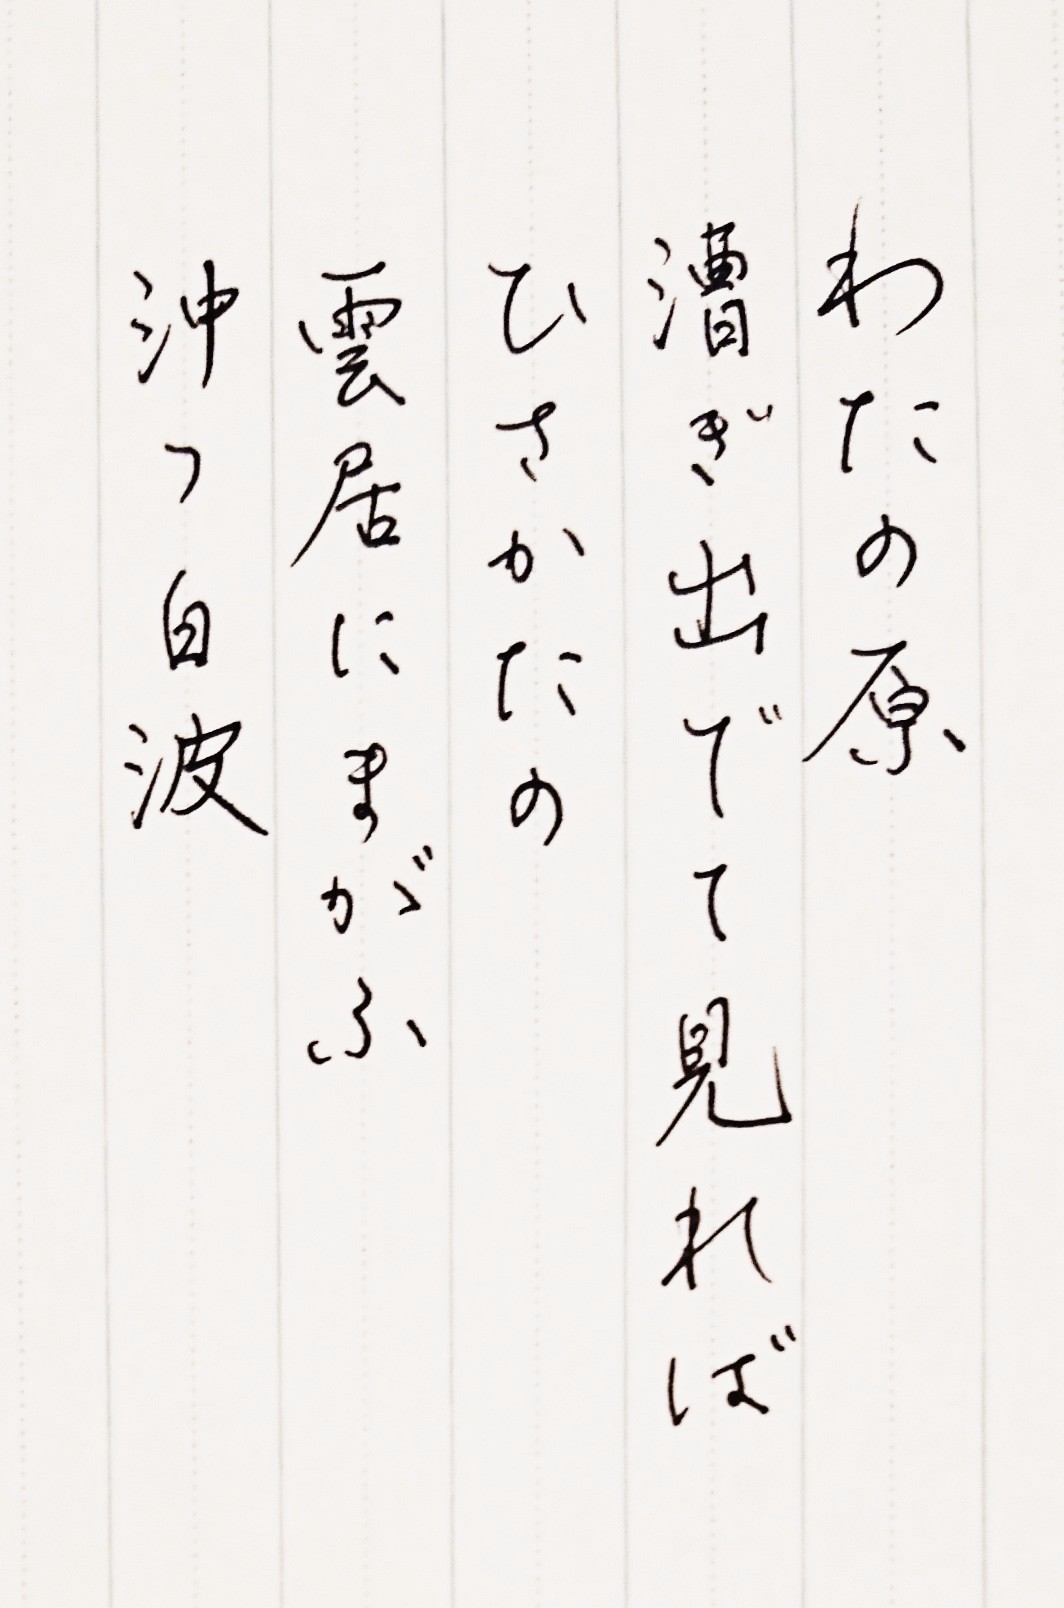 わたの原
漕ぎ出でて見れば
ひさかたの
雲居にまがふ
沖つ白波